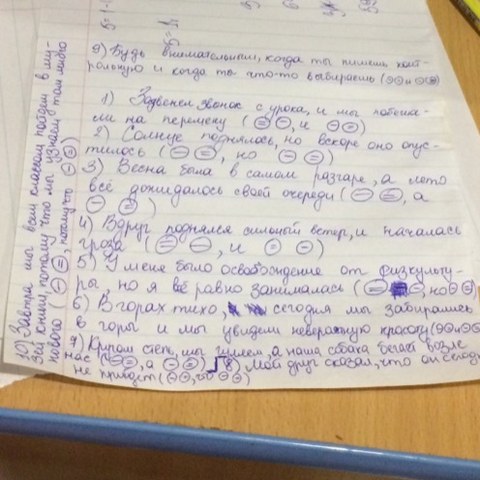 9) Будь внимательным, когда ты пишешь конт-
рольную и когда ты что-то выбираешь
1) Зазвенел звонок с урока, и мы побежа-
ли на перемену (⊖ ⊜, и ⊖ ⊜)
2) Солнце поднялось, но вскоре оно опус-
тилось (⊖ ⊜, но ⊖ ⊜)
3) Весна была в самом разгаре, а лето
всё дожидалось своей очереди (⊖ ⊜, а
⊖ ⊜)
4) Вдруг поднялся сильный ветер, и началась
гроза
5) У меня было освобождение от физкульту-
ры, но я всё равно занималась
6) В горах тихо, сегодня мы забирались
в горы и мы увидели невероятную красоту
7) Кругом степь, мы гуляем, а наша собака бегает возле
нас
8) Мой друг сказал, что он сегодня
не придёт
10) Завтра мы всем классом пойдем в му-
зей книги, потому что мы узнаем там много
нового (⊖ ⊜, потому что ⊖ ⊜)